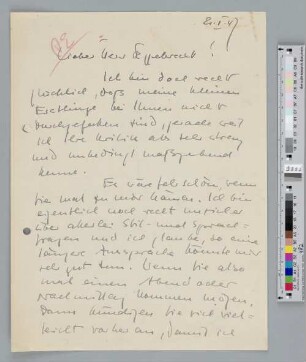 Lieber Herr Eggebrecht!
Ich bin doch recht
glücklich, daß meine kleinen
Erstlinge bei Ihnen nicht
durchgefallen sind, gerade weil
ich Ihre Kritik als sehr streng
und unbedingt maßgebend
kenne.
Es wäre sehr schön, wenn
Sie mal zu mir kämen. Ich bin
eigentlich noch recht unsicher
über allerlei Stil- und Sprach-
fragen und ich glaube, so eine
längere Aussprache könnte mir
sehr gut tun. Wenn Sie also
mal einen Abend oder
Nachmittag kommen mögen,
dann kündigen Sie sich viel-
leicht vorher an, damit ich